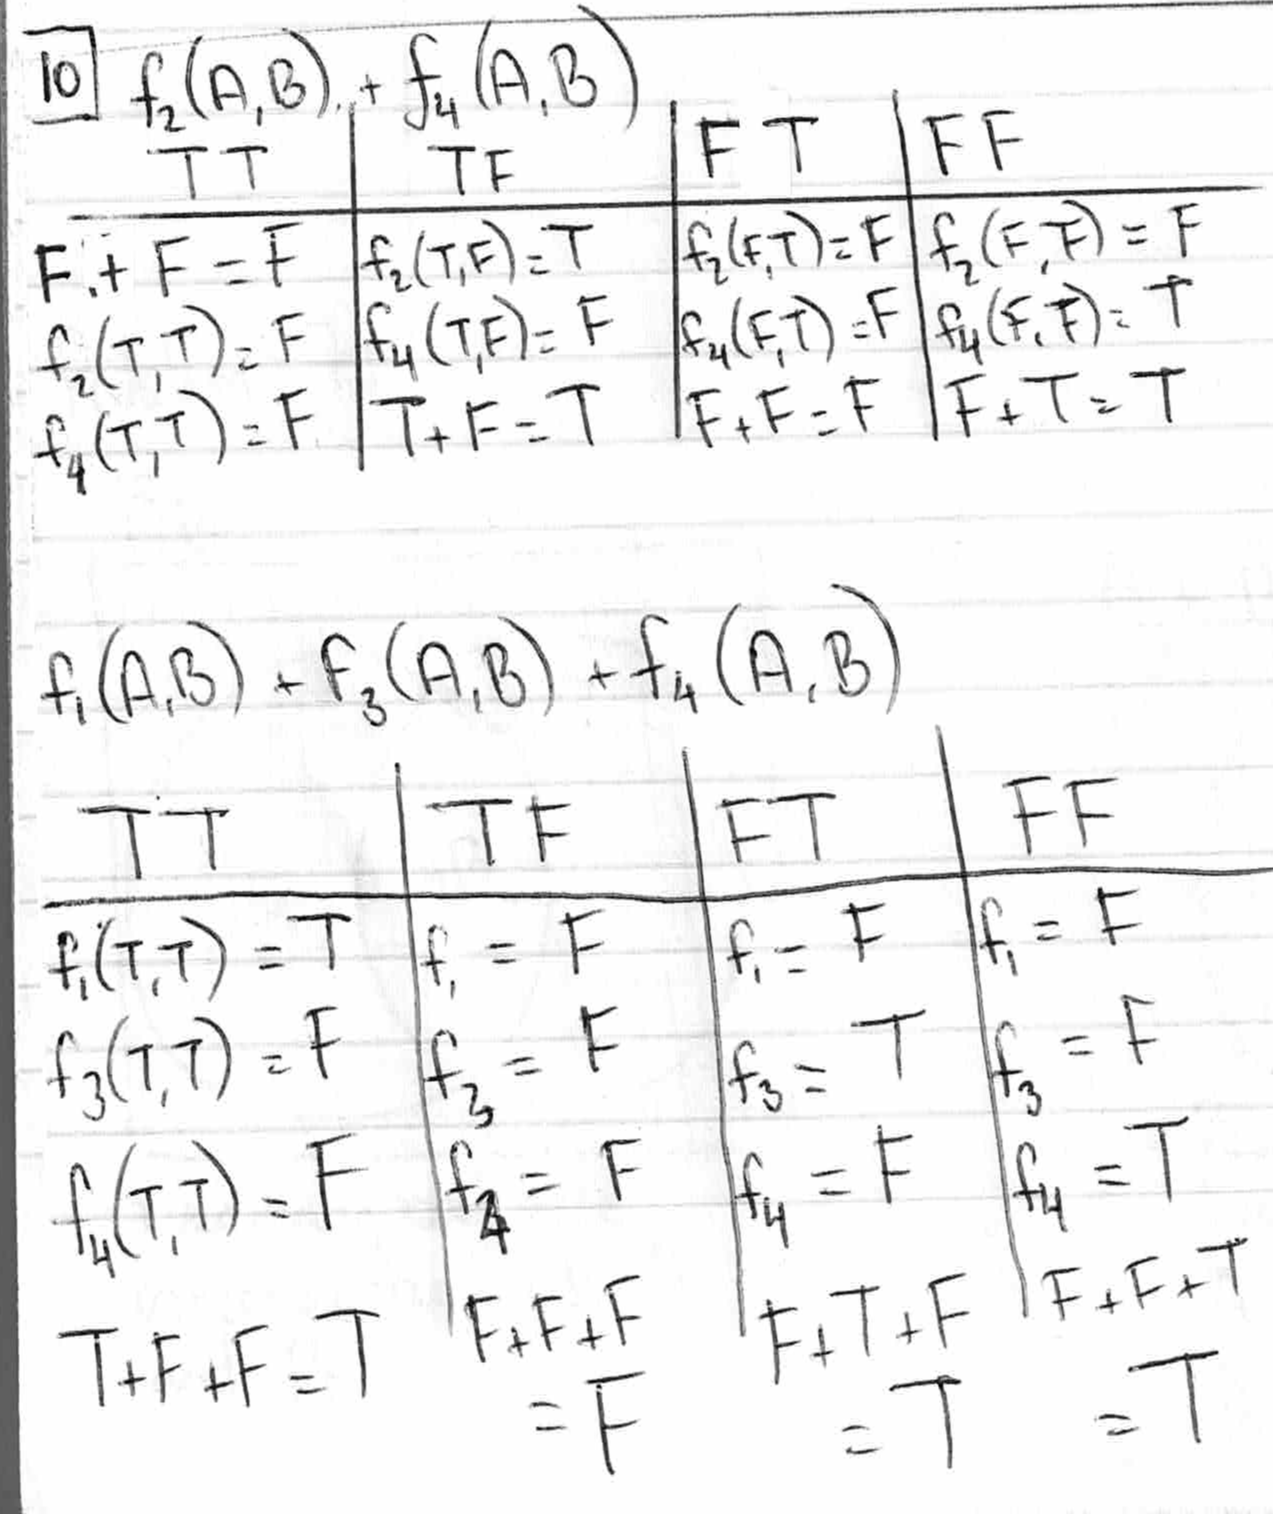 10 f₂(A,B) + f₄(A,B)
TT | TF | FT | FF
F + F = F | f₂(T,F) = T | f₂(F,T) = F | f₂(F,F) = F
f₂(T,T) = F | f₄(T,F) = F | f₄(F,T) = F | f₄(F,F) = T
f₄(T,T) = F | T + F = T | F + F = F | F + T = T
f₁(A,B) + f₃(A,B) + f₄(A,B)
TT | TF | FT | FF
f₁(T,T) = T | f₁ = F | f₁ = F | f₁ = F
f₃(T,T) = F | f₃ = F | f₃ = T | f₃ = F
f₄(T,T) = F | f₄ = F | f₄ = F | f₄ = T
T + F + F = T | F + F + F | F + T + F | F + F + T
= F | = T | = T